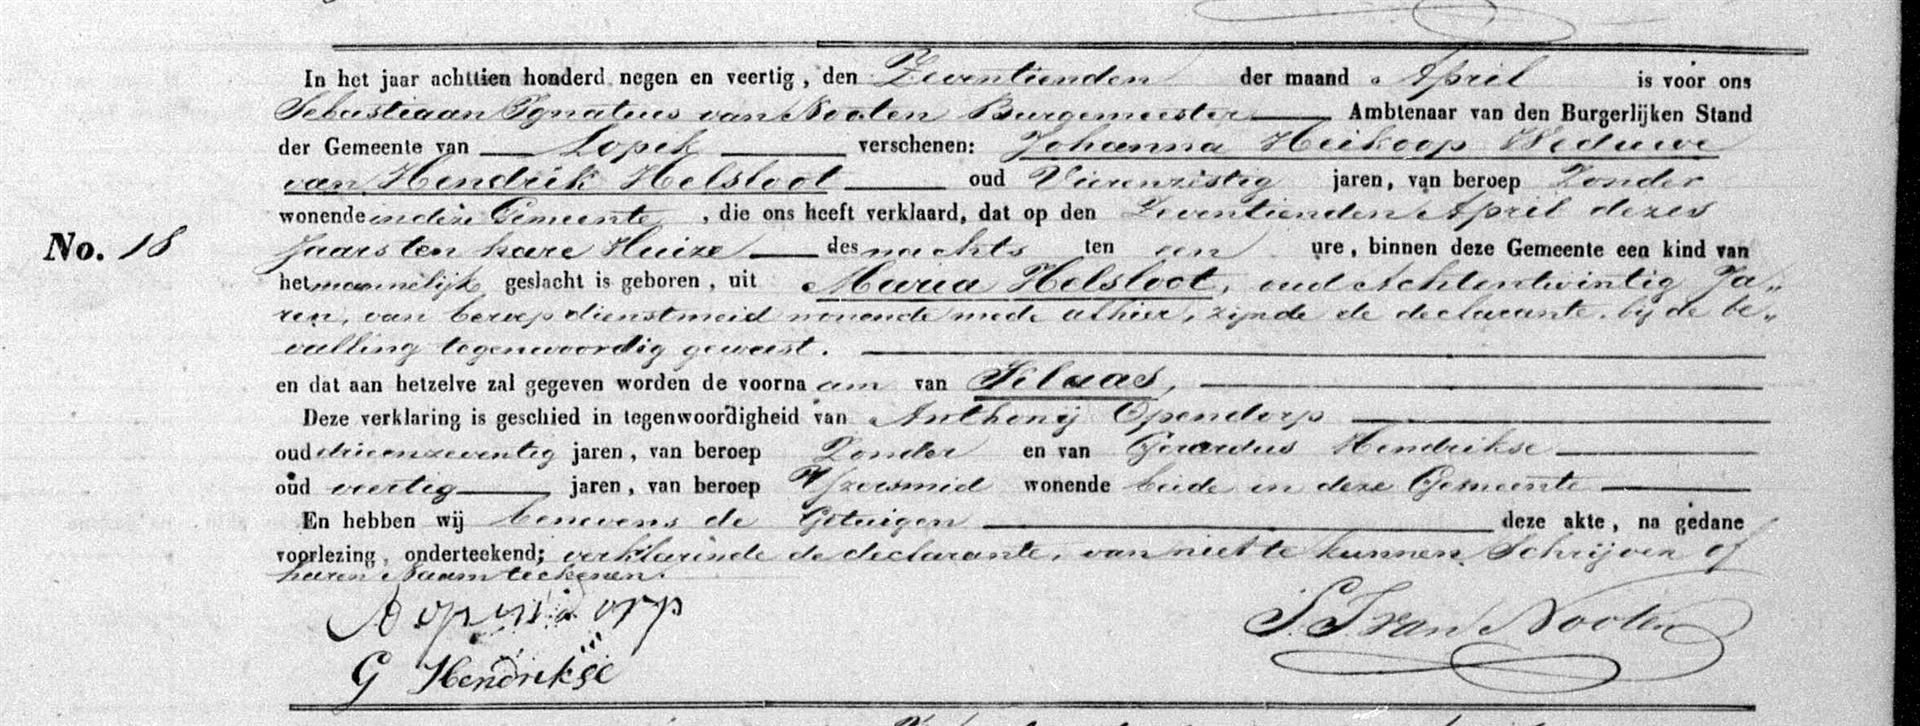 In het jaar achttien honderd negen en veertig, den Zeventienden der maand April is voor ons
Sebastiaan Ignatius van Nooten Burgemeester Ambtenaar van den Burgerlijken Stand
der Gemeente van Lopik verschenen: Johanna Heikoop Weduwe
van Hendrik Helsloot oud Vierenzistig jaren, van beroep Zonder
wonende in deze Gemeente, die ons heeft verklaard, dat op den Zeventienden April dezes
No. 18 Jaars ten hare Huize des nachts ten een ure, binnen deze Gemeente een kind van
het mannelijk geslacht is geboren, uit Maria Helsloot, oud Achtentwintig Ja„
ren, van beroep dienstmeid wonende mede alhier, zijnde de declarante, bij de be„
valling tegenwoordig geweest.
en dat aan hetzelve zal gegeven worden de voornaam van Klaas,
Deze verklaring is geschied in tegenwoordigheid van Anthonij Opendorp
oud drieenzeventig jaren, van beroep Zonder en van Gerardus Hendrikse
oud veertig jaren, van beroep IJzersmid wonende beide in deze Gemeente
En hebben wij benevens de Getuigen deze akte, na gedane
voorlezing, onderteekend; verklarende de declarante, van niet te kunnen Schrijven of
haren Naam teekenen.
A opendorp S. I. van Nooten
G Hendrikse